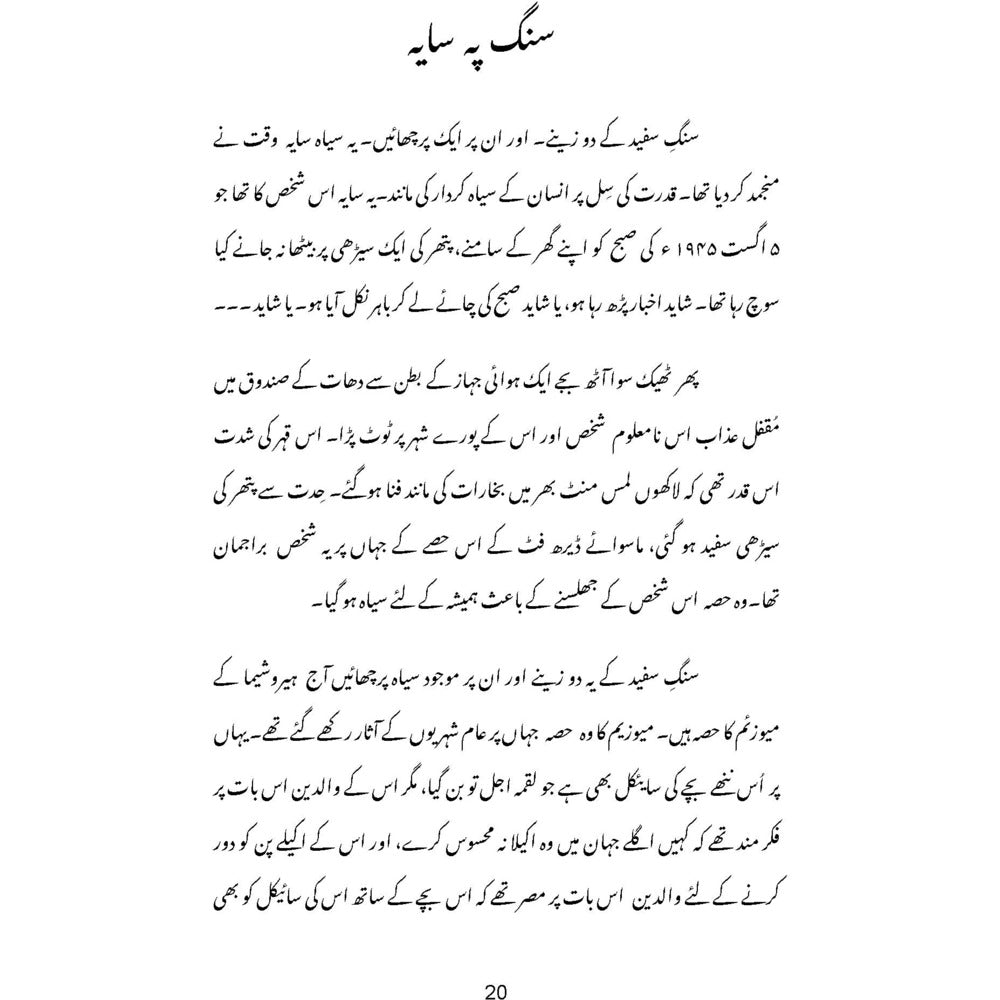 سنگ پہ سایہ
سنگِ سفید کے دو زینے۔ اور ان پر ایک پرچھائیں۔ یہ سیاہ سایہ وقت نے
منجمد کر دیا تھا۔ قدرت کی سِل پر انسان کے سیاہ کردار کی مانند۔ یہ سایہ اس شخص کا تھا جو
۵ اگست ۱۹۴۵ء کی صبح کو اپنے گھر کے سامنے، پتھر کی ایک سیڑھی پر بیٹھا نہ جانے کیا
سوچ رہا تھا۔ شاید اخبار پڑھ رہا ہو، یا شاید صبح کی چائے لے کر باہر نکل آیا ہو۔ یا شاید ۔۔۔
پھر ٹھیک سوا آٹھ بجے ایک ہوائی جہاز کے بطن سے دھات کے صندوق میں
مُقفل عذاب اس نامعلوم شخص اور اس کے پورے شہر پر ٹوٹ پڑا۔ اس قہر کی شدت
اس قدر تھی کہ لاکھوں لمس منٹ بھر میں بخارات کی مانند فنا ہو گئے۔ حِدت سے پتھر کی
سیڑھی سفید ہو گئی، ماسوائے ڈیرھ فٹ کے اس حصے کے جہاں پر یہ شخص براجمان
تھا۔ وہ حصہ اس شخص کے جھلسنے کے باعث ہمیشہ کے لئے سیاہ ہو گیا۔
سنگِ سفید کے یہ دو زینے اور ان پر موجود سیاہ پرچھائیں آج ہیروشیما کے
میوزئم کا حصہ ہیں۔ میوزیم کا وہ حصہ جہاں پر عام شہریوں کے آثار رکھے گئے تھے۔ یہاں
پر اُس ننھے بچے کی سایئکل بھی ہے جو لقمہ اجل تو بن گیا، مگر اس کے والدین اس بات پر
فکر مند تھے کہ کہیں اگلے جہان میں وہ اکیلا نہ محسوس کرے، اور اس کے اکیلے پن کو دور
کرنے کے لئے والدین اس بات پر مصر تھے کہ اس بچے کے ساتھ اس کی سائیکل کو بھی
20